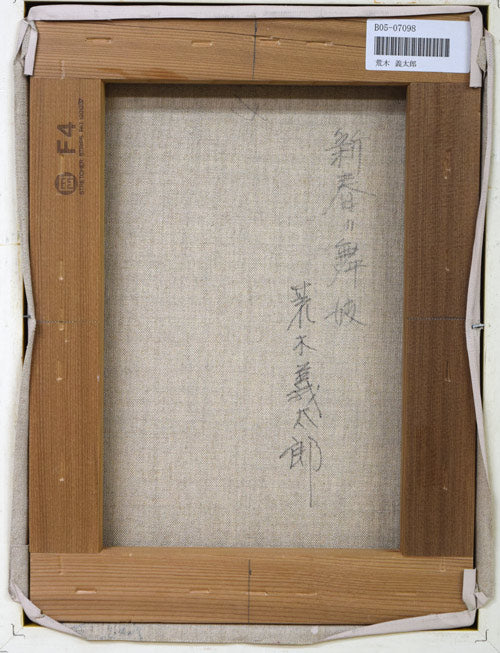 B05-07098
荒木 義太郎
F4
新春〃舞妓
荒木義太郎